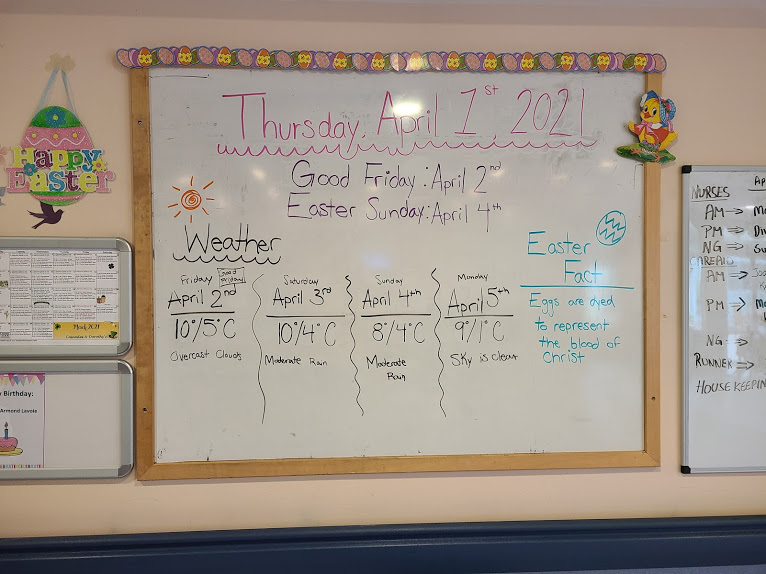 Thursday, April 1st, 2021
Good Friday: April 2nd
Easter Sunday: April 4th
Weather
Friday
Good Friday
April 2nd
10°/5°C
Overcast Clouds
Saturday
April 3rd
10°/4°C
Moderate Rain
Sunday
April 4th
8°/4°C
Moderate
Rain
Monday
April 5th
9°/1°C
Sky is clear
Easter
Fact
Eggs are dyed
to represent
the blood of
Christ
Happy
Easter
March 2021
Birthday:
Armond Lavoie
NURSES
AM
PM
NG
CAREAID
AM
PM
NG
RUNNER